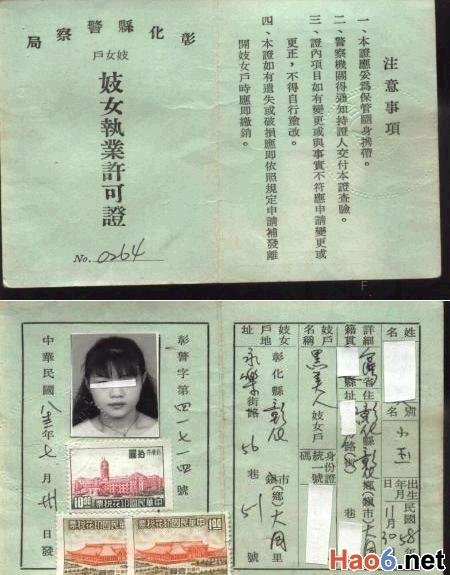 彰化縣警察局
妓女戶
妓女執業許可證
No. 0264
注意事項
一、本證應妥為保管隨身攜帶。
二、警察機關得通知持證人交付本證查驗。
三、證內項目如有變更或與事實不符應申請變更或
更正，不得自行塗改。
四、本證如有遺失或破損應即依照規定申請補發離
開妓女戶時應即繳銷。
姓名
別名
小玉
出生年月日
民國58年11月30
籍貫
詳細住址
台灣省彰化縣
鄉鎮市
大同
身份證統一號碼
妓女戶名稱
黑美人
妓女戶
妓女戶地址
彰化縣彰化
市鎮鄉
大同里
永樂街路56巷51號
彰警字第四一七一四號
中華民國八三年七月廿日發
拾圓
中華民國印花稅票
10.00
中華民國印花稅票
1.00
Hao6.net